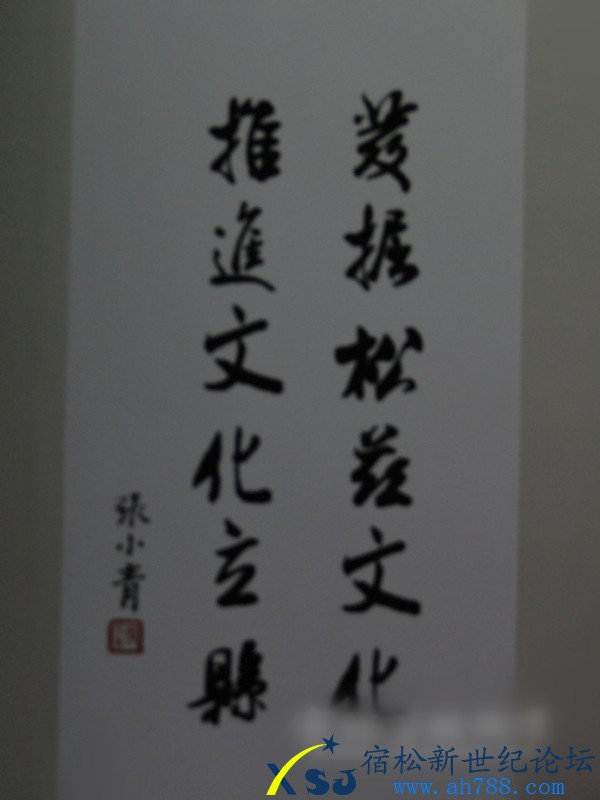 發掘松茲文化
推進文化立縣
張小青
XSJ 宿松新世纪论坛
www.ah788.com